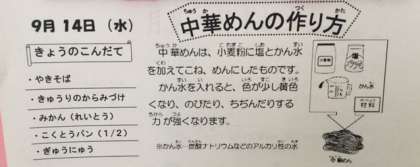 9月14日（水）
きょうのこんだて
・やきそば
・きゅうりのからみづけ
・みかん（れいとう）
・こくとうパン（1/2）
・ぎゅうにゅう
中華めんの作り方
中華めんは、小麦粉に塩とかん水
を加えてこね、めんにしたものです。
かん水を入れると、色が少し黄色
くなり、のびたり、ちぢんだりする
力が強くなります。
※かん水…炭酸ナトリウムなどのアルカリ性の水
かん水
材料